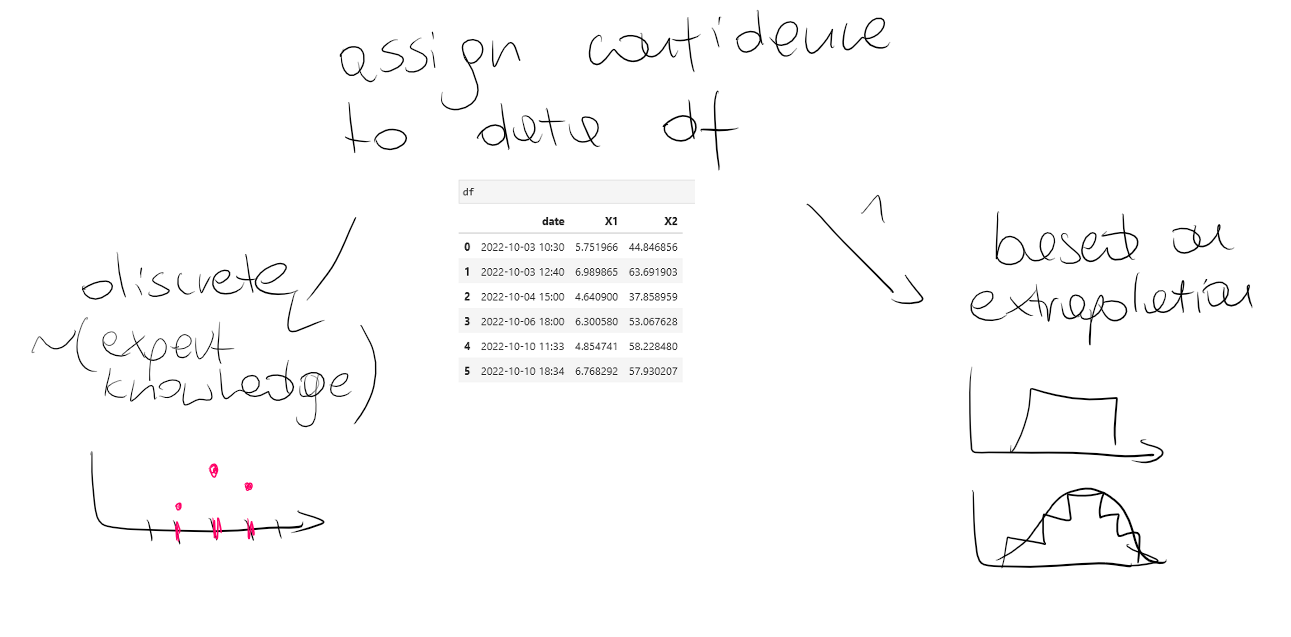 assign confidence
to date df
df
date X1 X2
0 2022-10-03 10:30 5.751966 44.846856
1 2022-10-03 12:40 6.989865 63.691903
2 2022-10-04 15:00 4.640900 37.858959
3 2022-10-06 18:00 6.300580 53.067628
4 2022-10-10 11:33 4.854741 58.228480
5 2022-10-10 18:34 6.768292 57.930207
discrete
~(expert
knowledge)
1
based on
extrapolation